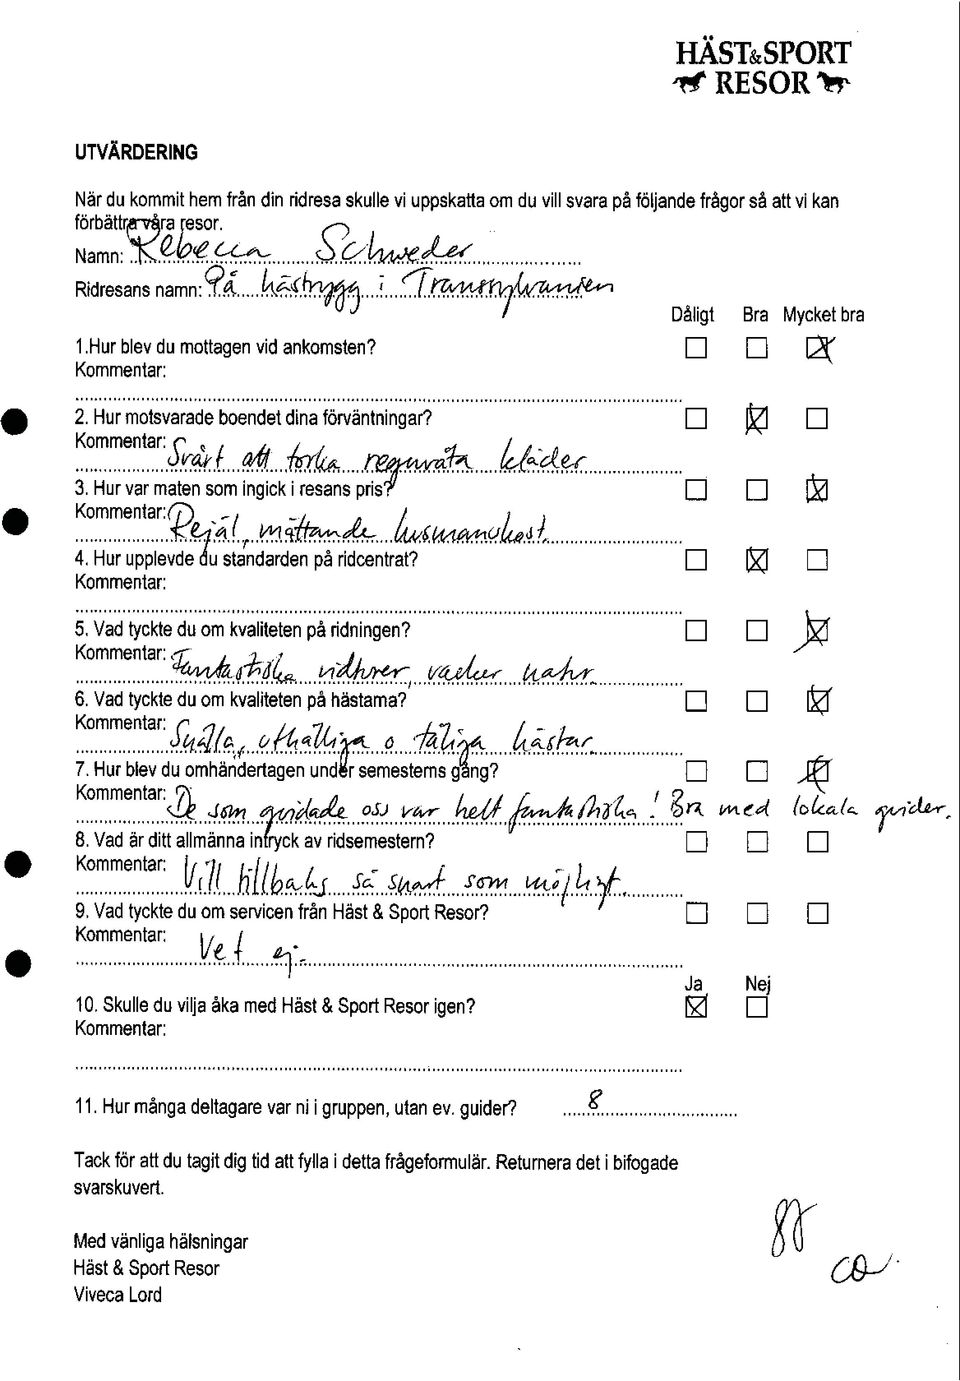 HÄST&SPORT
RESOR
UTVÄRDERING
När du kommit hem från din ridresa skulle vi uppskatta om du vill svara på följande frågor så att vi kan
förbättra våra resor.
Namn: Rebecca Schweder
Ridresans namn: På hästrygg i Transsylvanien
Dåligt Bra Mycket bra
1.Hur blev du mottagen vid ankomsten?
Kommentar:
2. Hur motsvarade boendet dina förväntningar?
Kommentar: Svårt att torka regnvåta kläder
3. Hur var maten som ingick i resans pris?
Kommentar: Rejäl, mättande husmanskost.
4. Hur upplevde du standarden på ridcentrat?
Kommentar:
5. Vad tyckte du om kvaliteten på ridningen?
Kommentar: Fantastiska ridturer, vacker natur.
6. Vad tyckte du om kvaliteten på hästarna?
Kommentar: Snälla, uthålliga o tåliga hästar.
7. Hur blev du omhändertagen under semesterns gång?
Kommentar: De som guidade oss var helt fantastiska! Bra med lokala guider.
8. Vad är ditt allmänna intryck av ridsemestern?
Kommentar: Vill tillbaks så snart som möjligt.
9. Vad tyckte du om servicen från Häst & Sport Resor?
Kommentar: Vet ej.
Ja Nej
10. Skulle du vilja åka med Häst & Sport Resor igen?
Kommentar:
11. Hur många deltagare var ni i gruppen, utan ev. guider? 8
Tack för att du tagit dig tid att fylla i detta frågeformulär. Returnera det i bifogade
svarskuvert.
Med vänliga hälsningar
Häst & Sport Resor
Viveca Lord